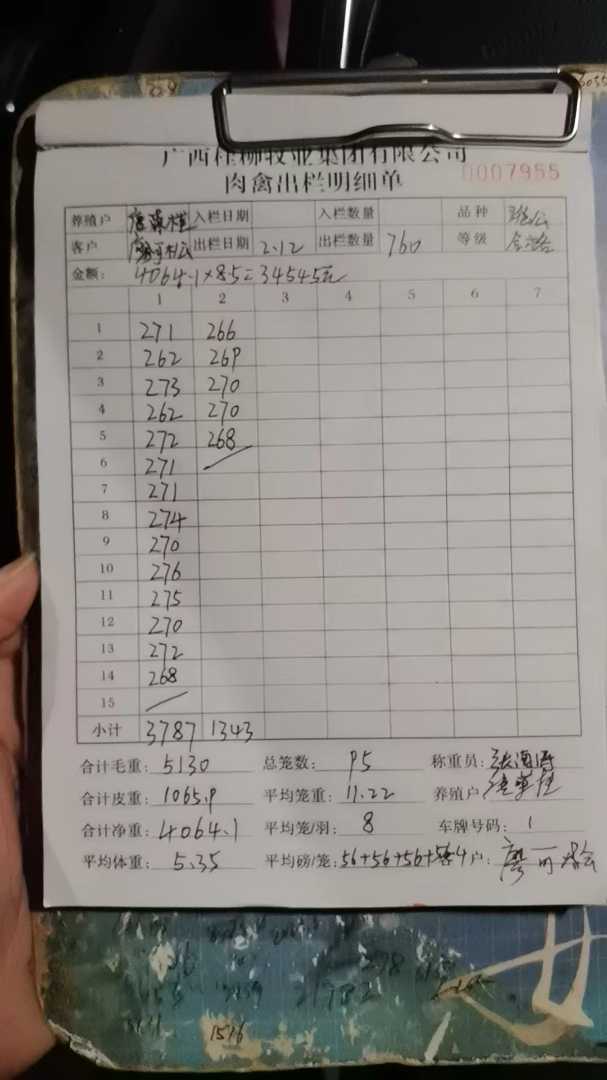 广西桂柳牧业集团有限公司
肉禽出栏明细单 0007955
养殖户 入栏日期 入栏数量 品种
客户 出栏日期 2.12 出栏数量 760 等级 合格
金额: 4064.1×8.5=34545元
1 2 3 4 5 6 7
1 271 266
2 262 269
3 273 270
4 262 270
5 272 268
6 271
7 271
8 274
9 270
10 276
11 275
12 270
13 272
14 268
15
小计 3787 1343
合计毛重: 5130 总笼数: 95 称重员:
合计皮重: 1065.9 平均笼重: 11.22 养殖户:
合计净重: 4064.1 平均笼/羽: 8 车牌号码: 1
平均体重: 5.35 平均磅/笼: 56+56+56+ 客户: 廖可
1516